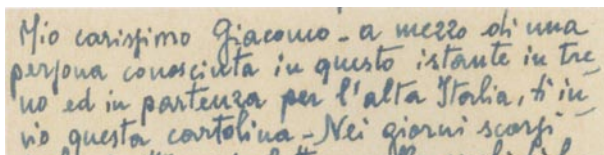 Mio carissimo Giacomo - a mezzo di una
persona conosciuta in questo istante in tre-
no ed in partenza per l'alta Italia, ti in-
vio questa cartolina - Nei giorni scorsi